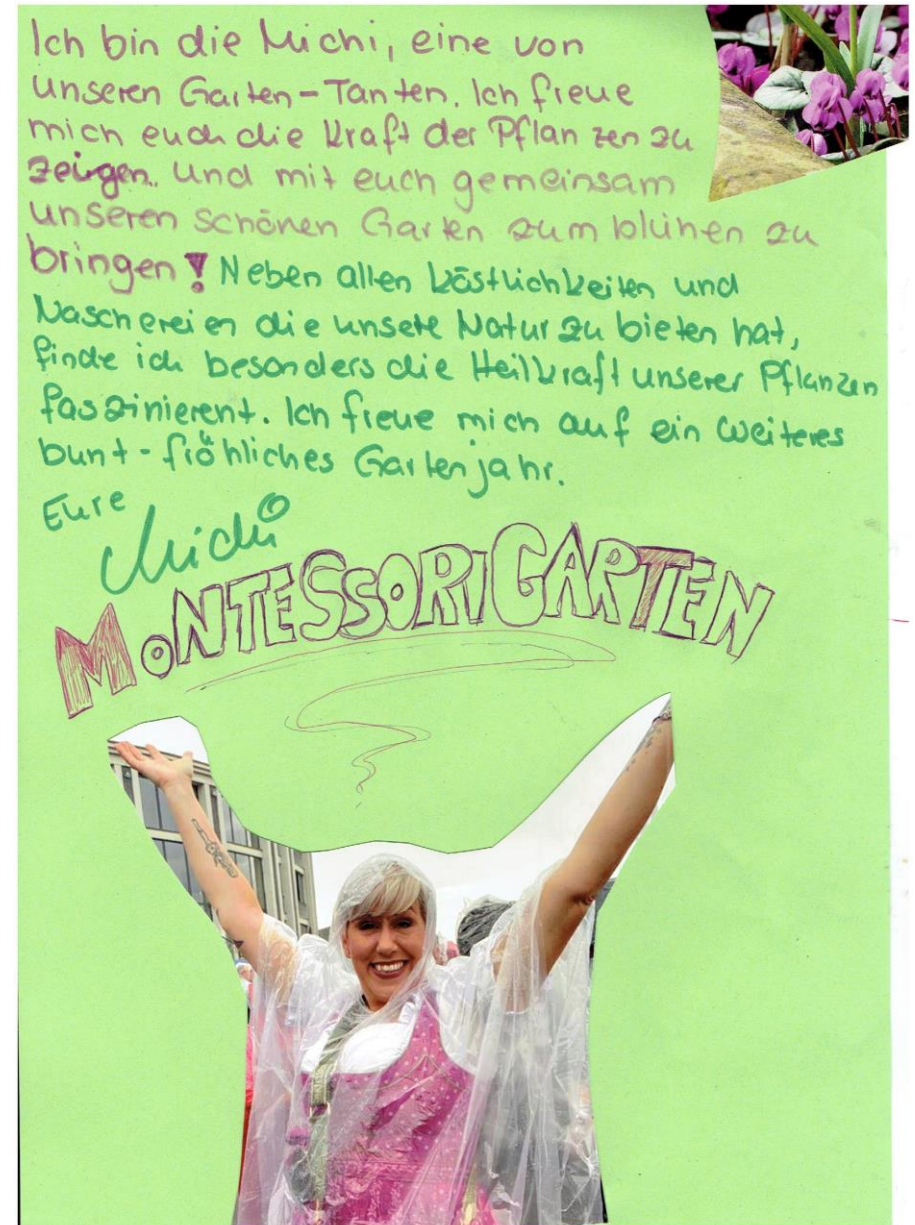 Ich bin die Michi, eine von
unseren Garten-Tanten. Ich freue
mich euch die Kraft der Pflanzen zu
zeigen. Und mit euch gemeinsam
unseren schönen Garten zum blühen zu
bringen!
Neben allen Köstlichkeiten und
Naschereien die unsere Natur zu bieten hat,
finde ich besonders die Heilkraft unserer Pflanzen
faszinierent. Ich freue mich auf ein weiteres
bunt-fröhliches Gartenjahr.
Eure
Michi
MONTESSORIGARTEN